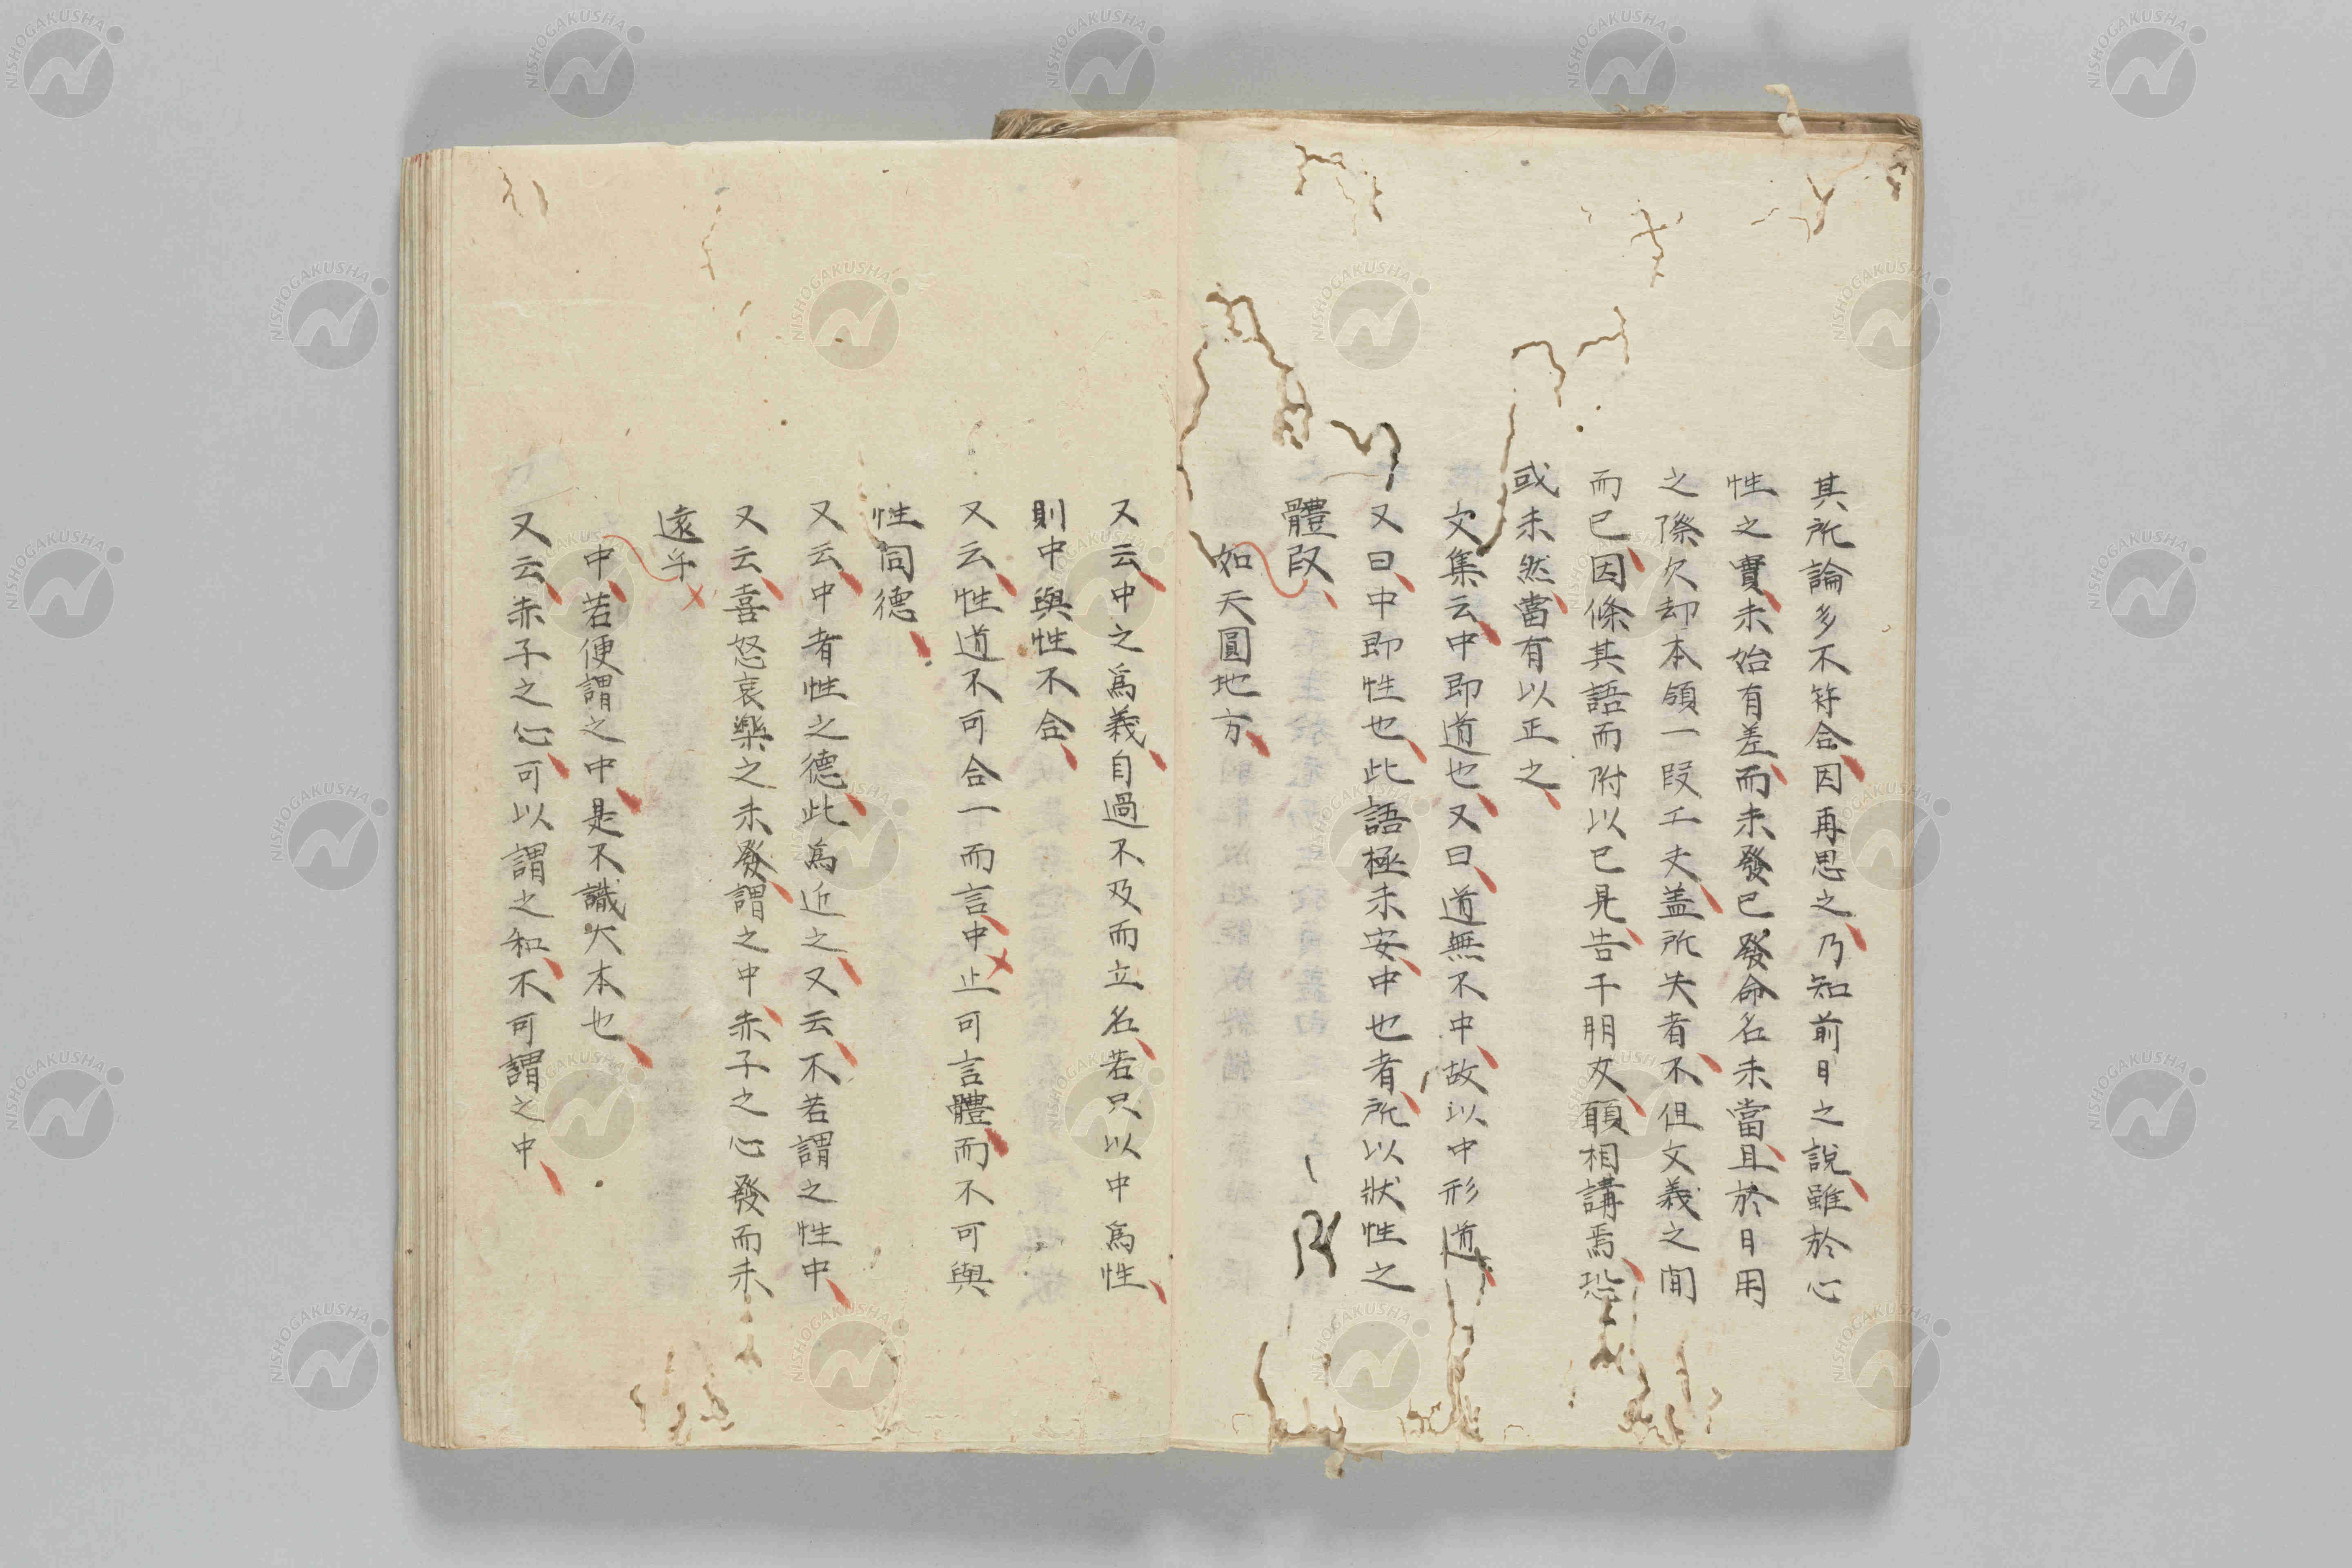 其所論多不符合因再思之乃知前日之說雖於心
性之實未始有差而未發已發命名未當且於日用
之際欠却本領一段工夫盖所失者不但文義之間
而已因條其語而附以已見告于朋友願相講焉恐
或未然當有以正之
文集云中即道也又曰道無不中故以中形道
又曰中即性也此語極未安中也者所以狀性之
體段
如天圓地方
又云中之爲義自過不及而立名若只以中爲性
則中與性不合
又云性道不可合一而言中止可言體而不可與
性同德
又云中者性之德此爲近之又云不若謂之性中
又云喜怒哀樂之未發謂之中赤子之心發而未
遠乎
中若便謂之中是不識大本也
又云赤子之心可以謂之和不可謂之中
NISHOGAKUSHA